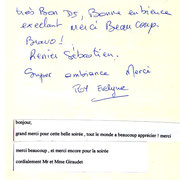 très Bon DJ, Bonne enbience
execlant Merci Beau Coup.
Bravo!
Renier Sébastien.
Super ambiance Merci
Evelyne
bonjour,
grand merci pour cette belle soirée , tout le monde a beaucoup apprécier ! merci
merci beaucoup , et merci encore pour la soirée
cordialement Mr et Mme Giraudet